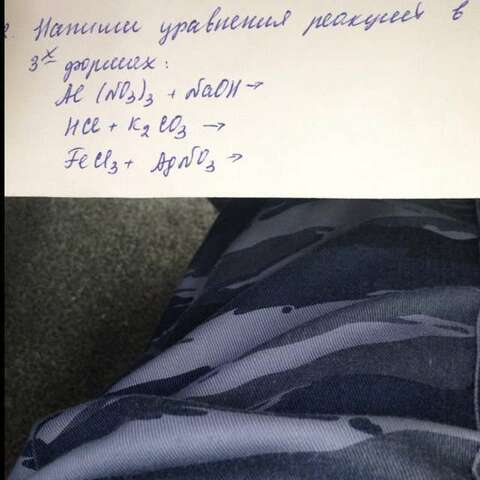 2. Напиши уравнения реакций в
3х формах:
Al (NO3)3 + NaOH →
HCl + K2CO3 →
FeCl3 + AgNO3 →